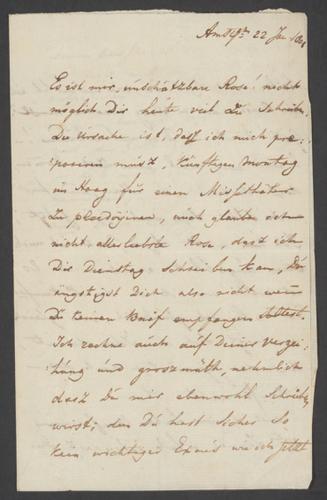 Amst 22 Jan
Es ist mir, unschätzbare Rose! nicht
möglich Dir heute viel zu schreiben
Die Ursache ist, dasz ich mich pre=
pariren musz, künftigen Montag
im Haag für einen Missethäter
zu plaedoyiren, auch glaube ich
nicht allerliebste Rose, dasz ich
Dir Dienstag schreiben kan, Du
ängstigst Dich also nicht wenn
Du keinen Brief empfangen solltest.
Ich rechne auch auf Deine verzei=
hung und groszmuth, nehmlich
dasz Du mir ebenwohl schreiben
wirst; den Du hast sicher so
kein wichtiger als ich jetzt